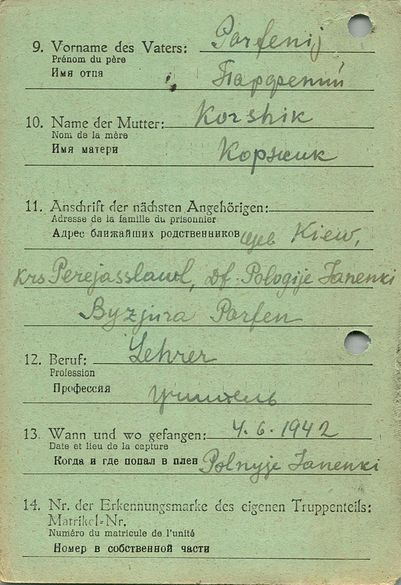 9. Vorname des Vaters: Parfenij
Prénom du père
Имя отца Парфений
10. Name der Mutter: Korshik
Nom de la mère
Имя матери Коржик
11. Anschrift der nächsten Angehörigen:
Adresse de la famille du prisonnier
Адрес ближайших родственников Geb Kiew,
Krs Perejasslawl, Df. Pologije Janenki
Byzjura Parfen
12. Beruf: Lehrer
Profession
Профессия учитель
13. Wann und wo gefangen: 4.6.1942
Date et lieu de la capture
Когда и где попал в плен Polnyje Janenki
14. Nr. der Erkennungsmarke des eigenen Truppenteils:
Matrikel-Nr.
Numéro du matricule de l'unité
Номер в собственной части